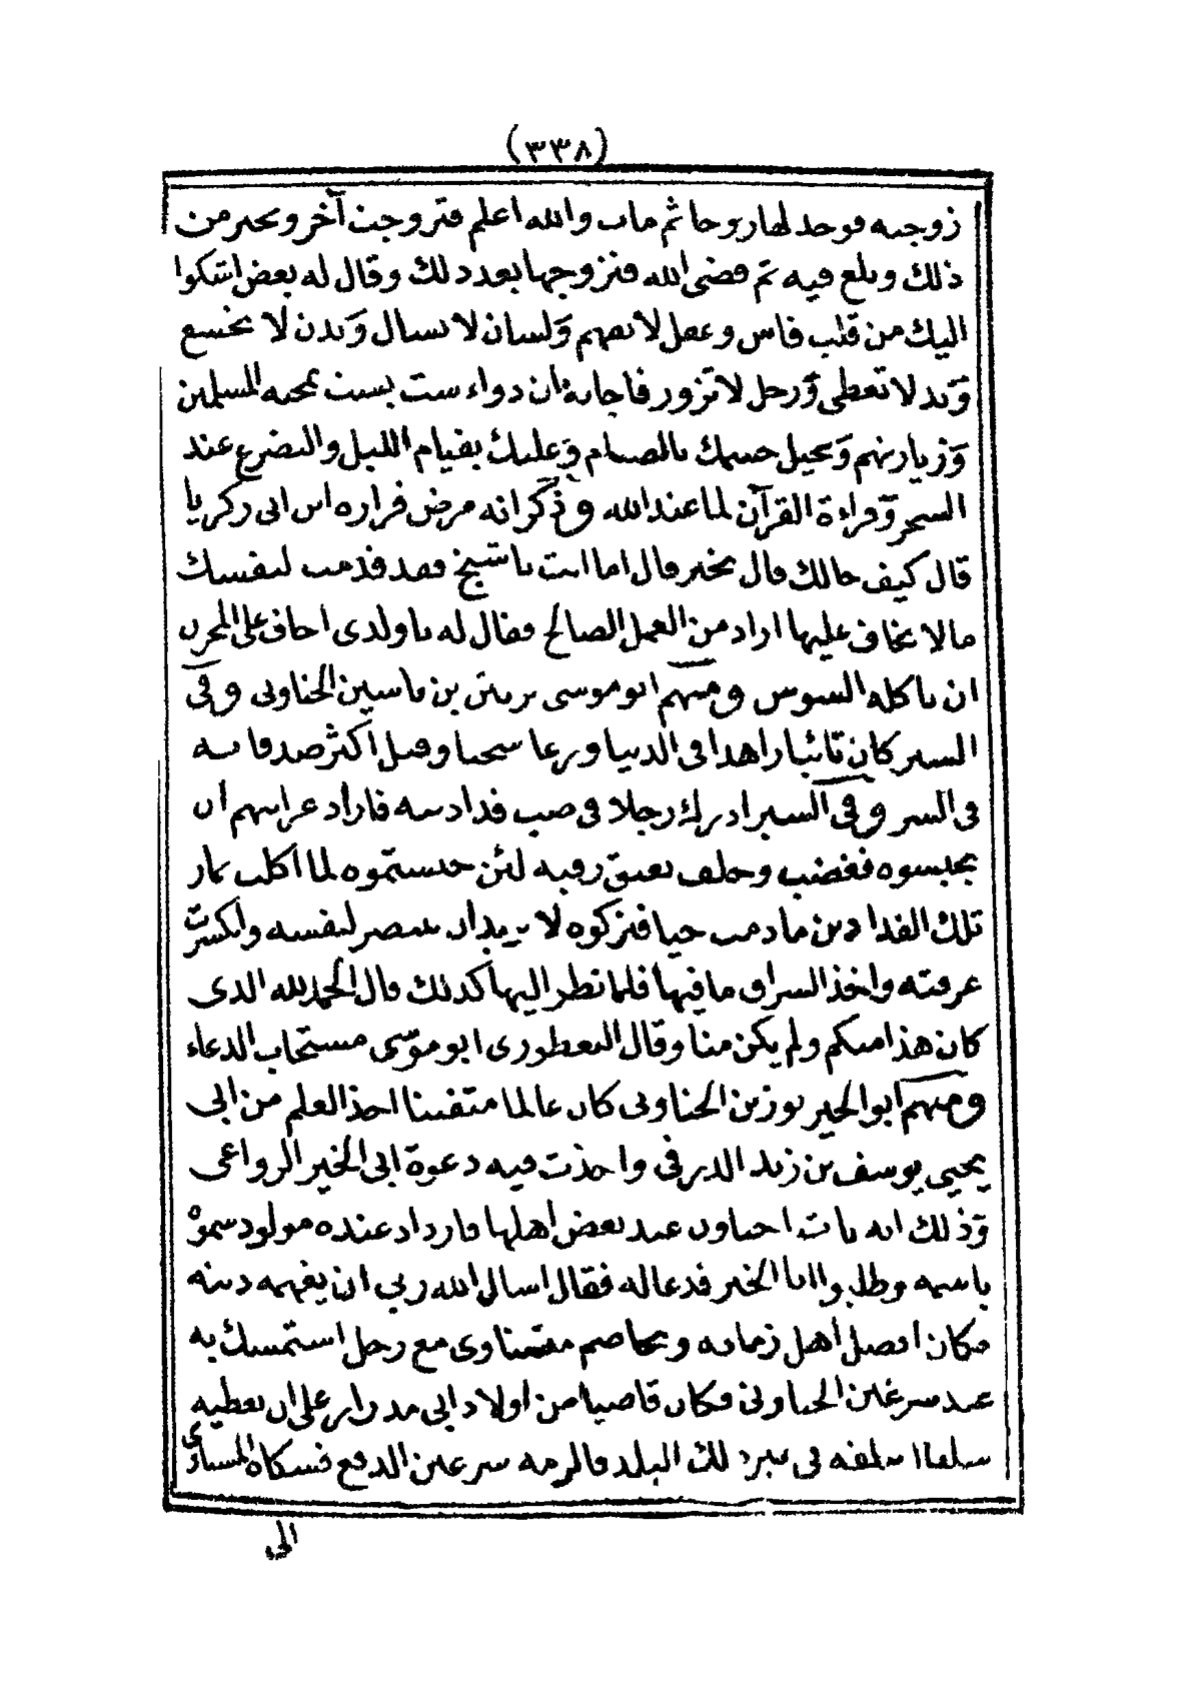 (٣٣٨)
زوجته فوجد لها زوجا ثم مات والله اعلم فتزوجت آخر وتحير من
ذلك وبلغ فيه ثم قضى الله فتزوجها بعد ذلك وقال له بعض اشكوا
اليك من قلب قاس وعقل لا يفهم ولسان لا يسال وبدن لا يخشع
ويد لا تعطى ورجل لا تزور فاجابه ان دواء ست بست بمحبة المسلمين
وزيارتهم وتحيل جسمك بالصيام وعليك بقيام الليل والتضرع عند
السحر وقراءة القرآن لما عند الله وذكر انه مرض فزاره ابن ابى زكريا
قال كيف حالك قال بخير قال اما انت يا شيخ فقد قدمت لنفسك
ما لا يخاف عليها اراد من العمل الصالح فقال له يا ولدى اخاف على المخزن
ان ياكله السوس ومنهم ابو موسى يزيتن بن ياسين الجناونى وفى
السير كان تائبا زاهدا فى الدنيا ورعا سخيا وقيل اكثر صدقاته
فى السر وفى السير ادرك رجلا فى فدادينه فاراد عزابهم ان
يحبسوه فغضب وحلف بعتق رقبة لئن حبستموه لما اكلت ثمار
تلك الفدادين ما دمت حيا فتركوه لا يريد ان ينتصر لنفسه وانكسرت
غرفته واخذ السراق ما فيها فلما نظر اليها كذلك قال الحمد لله الذى
كان هذا منكم ولم يكن منا وقال البغطورى ابو موسى مستجاب الدعاء
ومنهم ابو الخير توزين الجناونى كان عالما متفننا اخذ العلم من ابى
يحيى يوسف بن زيد الدرفى واخذت فيه دعوة ابى الخير الزواغى
وذلك انه بات اجناون عند بعض اهلها فازداد عنده مولود سموه
باسمه وطلبوا ابا الخير فدعا له فقال اسال الله ربي ان يفهمه دينه
فكان افضل اهل زمانه وتخاصم مع رجل استمسك به
عند سرغين الجناونى فكان قاضيا من اولاد ابى مدرار على ان يعطيه
سلفا سلفه فى تلك البلد فالزمه سرغين الدفع فشكاه
الى